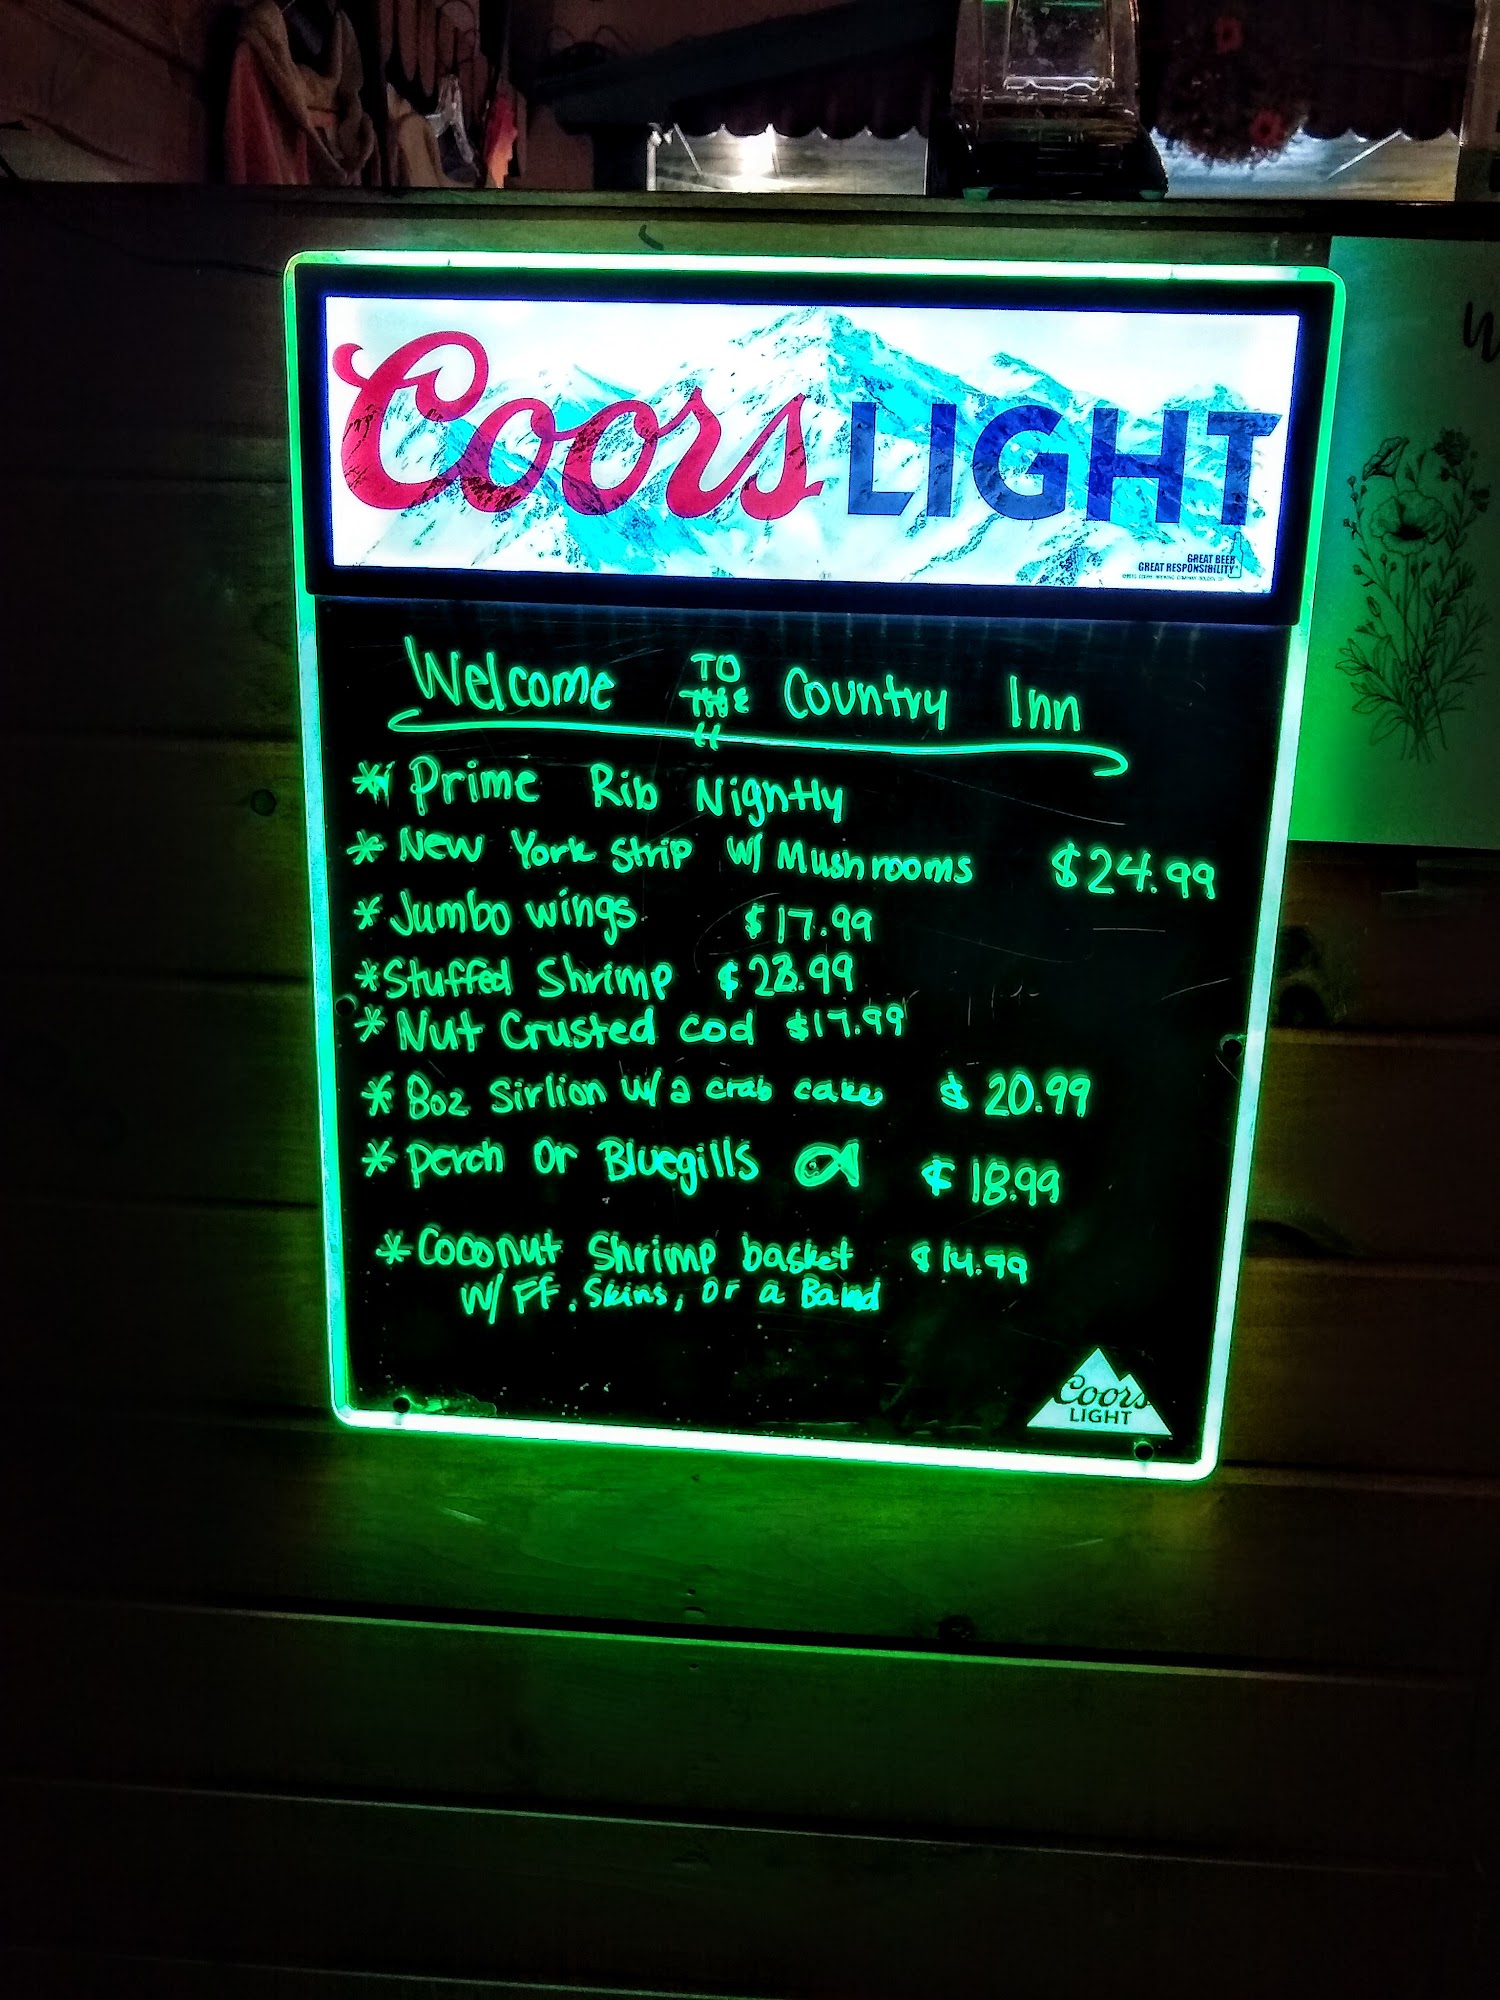 Coors LIGHT
GREAT BEER
GREAT RESPONSIBILITY
Welcome TO THE Country Inn
* Prime Rib Nightly
* New York Strip w/ Mushrooms $24.99
* Jumbo wings $17.99
* Stuffed Shrimp $23.99
* Nut Crusted cod $17.99
* 8oz Sirlion w/ a crab cake $20.99
* perch Or Bluegills $18.99
* Coconut Shrimp basket $14.99
w/ FF, Skins, or a Baked
Coors
LIGHT